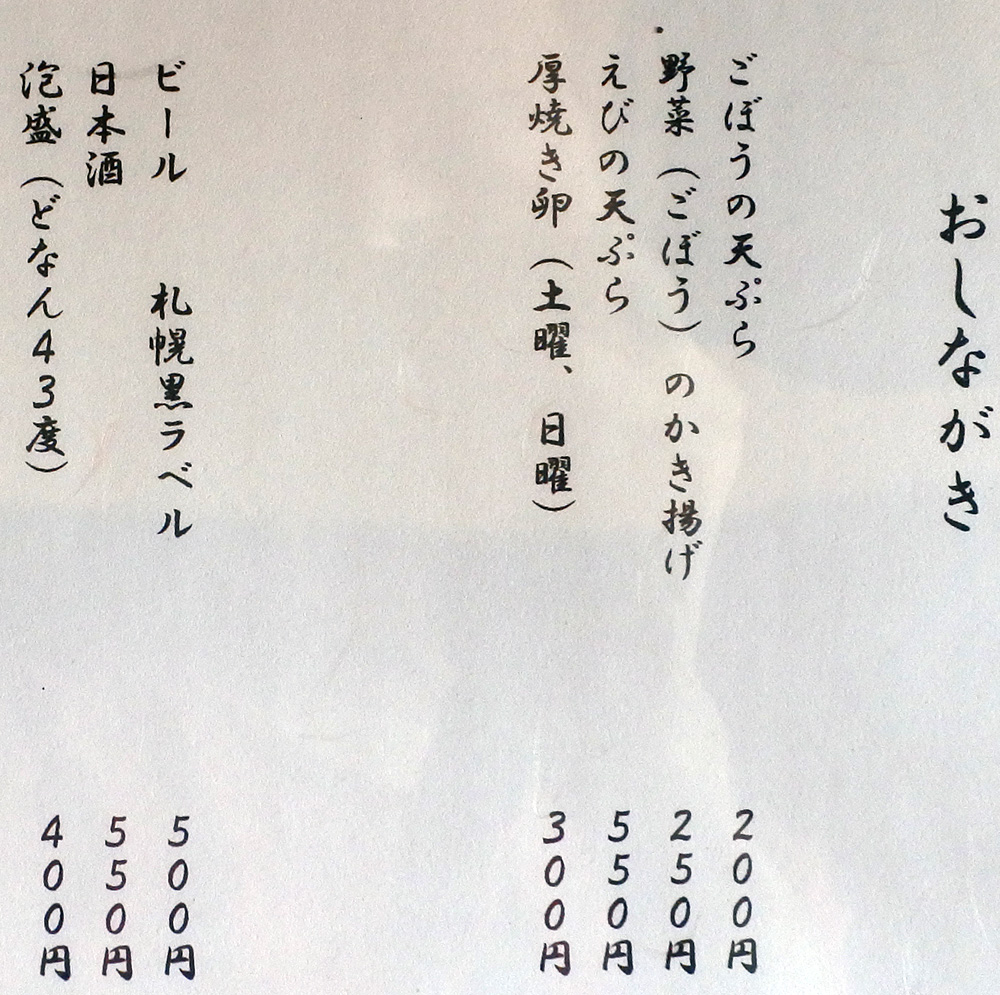 おしながき
ごぼうの天ぷら 200円
野菜（ごぼう）のかき揚げ 250円
えびの天ぷら 550円
厚焼き卵（土曜、日曜） 300円
ビール 札幌黒ラベル 500円
日本酒 550円
泡盛（どなん43度） 400円